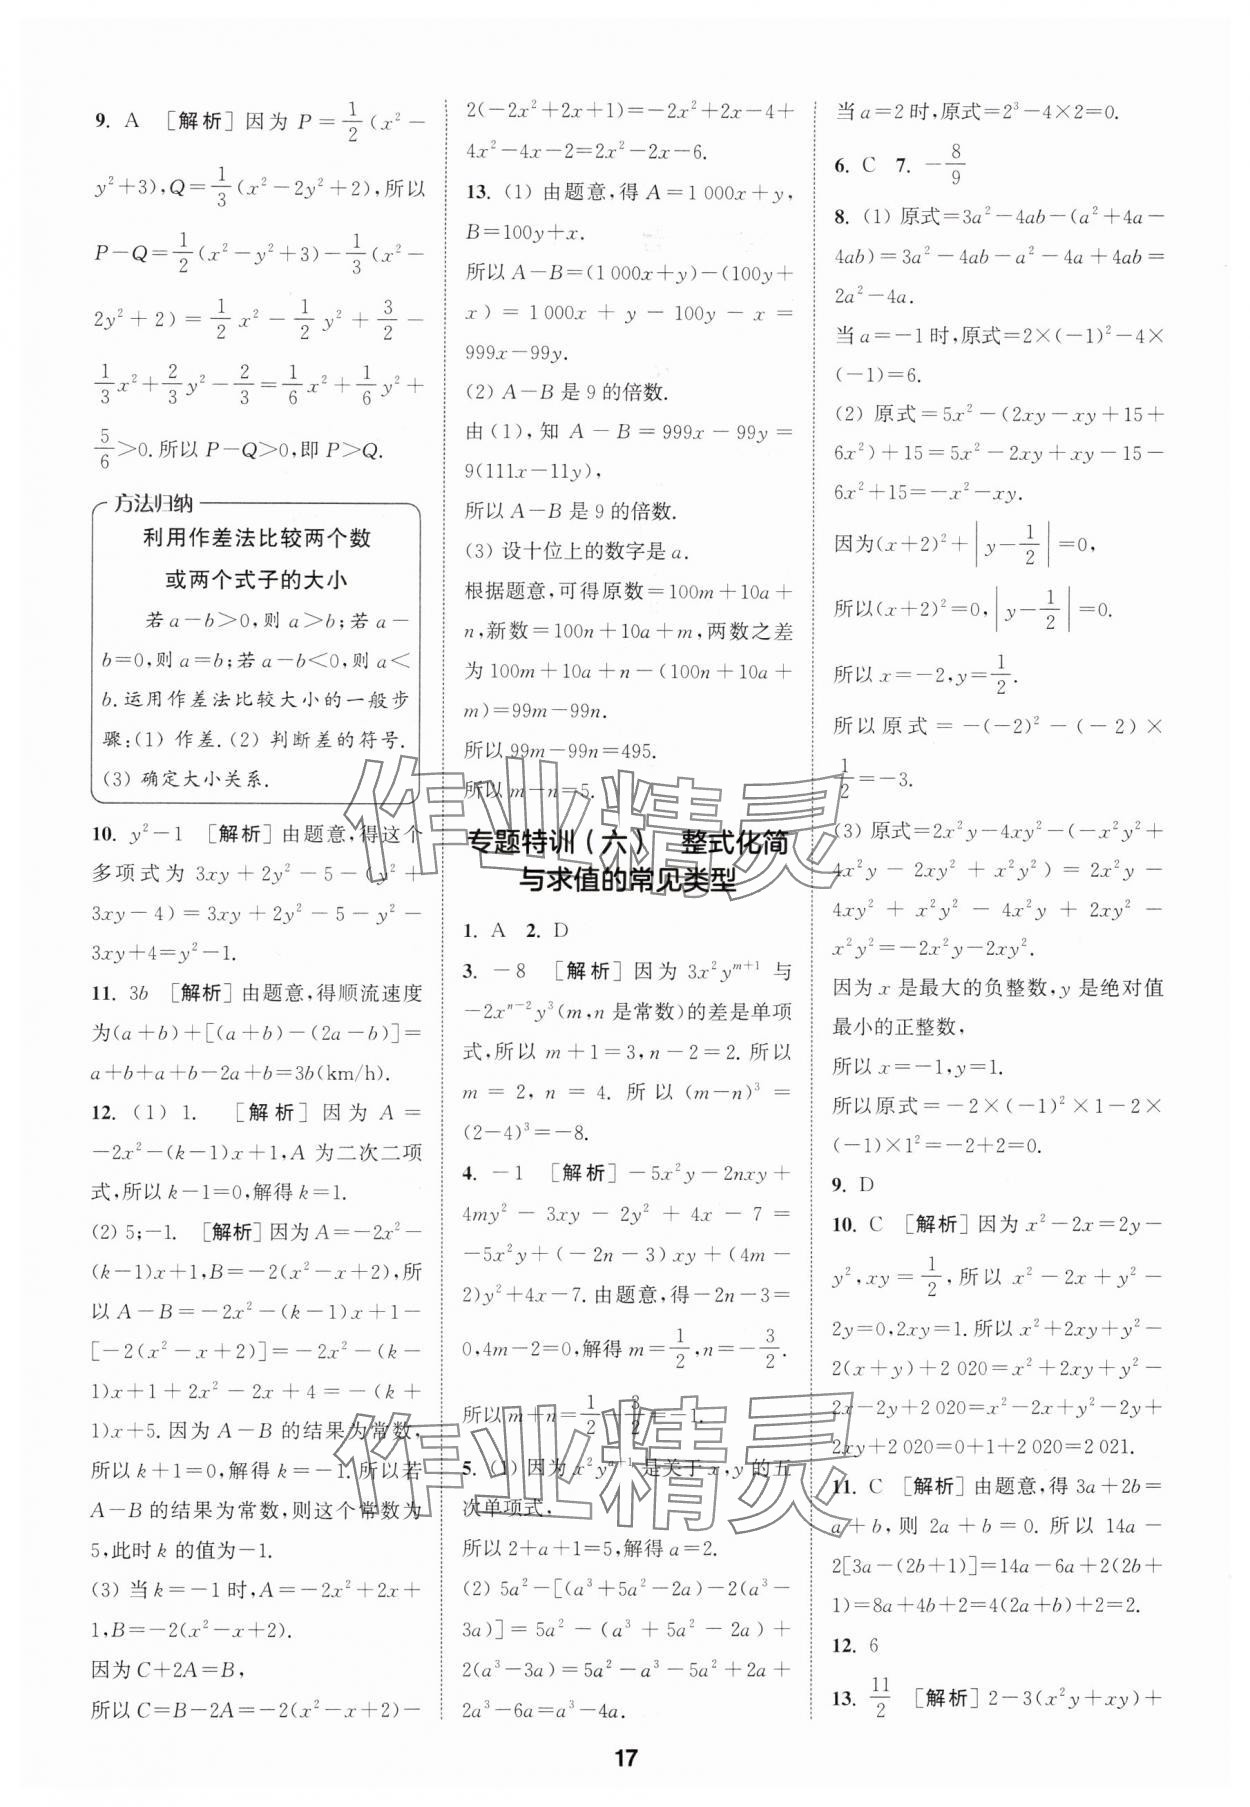 9. A [解析]因为 P=1/2(x²-
y²+3),Q=1/3(x²-2y²+2),所以
P-Q=1/2(x²-y²+3)-1/3(x²-
2y²+2)=1/2x²-1/2y²+3/2-
1/3x²+2/3y²-2/3=1/6x²+1/6y²+
5/6>0.所以 P-Q>0,即 P>Q.
方法归纳
利用作差法比较两个数
或两个式子的大小
若 a-b>0,则 a>b;若 a-
b=0,则 a=b;若 a-b<0,则 a<
b.运用作差法比较大小的一般步
骤:(1) 作差.(2) 判断差的符号.
(3) 确定大小关系.
10. y²-1 [解析]由题意,得这个
多项式为 3xy+2y²-5-(y²+
3xy-4)=3xy+2y²-5-y²-
3xy+4=y²-1.
11. 3b [解析]由题意,得顺流速度
为(a+b)+[(a+b)-(2a-b)]=
a+b+a+b-2a+b=3b(km/h).
12. (1) 1. [解析]因为 A=
-2x²-(k-1)x+1,A 为二次二项
式,所以 k-1=0,解得 k=1.
(2) 5;-1. [解析]因为 A=-2x²-
(k-1)x+1,B=-2(x²-x+2),所
以 A-B=-2x²-(k-1)x+1-
[-2(x²-x+2)]=-2x²-(k-
1)x+1+2x²-2x+4=-(k+
1)x+5.因为 A-B 的结果为常数,
所以 k+1=0,解得 k=-1.所以若
A-B 的结果为常数,则这个常数为
5,此时 k 的值为-1.
(3) 当 k=-1 时,A=-2x²+2x+
1,B=-2(x²-x+2).
因为 C+2A=B,
所以 C=B-2A=-2(x²-x+2)-
2(-2x²+2x+1)=-2x²+2x-4+
4x²-4x-2=2x²-2x-6.
13. (1) 由题意,得 A=1 000x+y,
B=100y+x.
所以 A-B=(1 000x+y)-(100y+
x)=1 000x+y-100y-x=
999x-99y.
(2) A-B 是 9 的倍数.
由(1),知 A-B=999x-99y=
9(111x-11y),
所以 A-B 是 9 的倍数.
(3) 设十位上的数字是 a.
根据题意,可得原数=100m+10a+
n,新数=100n+10a+m,两数之差
为 100m+10a+n-(100n+10a+
m)=99m-99n.
所以 99m-99n=495.
所以 m-n=5.
专题特训(六) 整式化简
与求值的常见类型
1. A 2. D
3. -8 [解析]因为 3x²yᵐ⁺¹ 与
-2xⁿ⁻²y³(m,n 是常数)的差是单项
式,所以 m+1=3,n-2=2.所以
m=2,n=4.所以(m-n)³=
(2-4)³=-8.
4. -1 [解析]-5x²y-2nxy+
4my²-3xy-2y²+4x-7=
-5x²y+(-2n-3)xy+(4m-
2)y²+4x-7.由题意,得-2n-3=
0,4m-2=0,解得 m=1/2,n=-3/2.
所以 m+n=1/2-3/2=-1.
5. (1) 因为 x²yᵃ⁺¹ 是关于 x,y 的五
次单项式,
所以 2+a+1=5,解得 a=2.
(2) 5a²-[(a³+5a²-2a)-2(a³-
3a)]=5a²-(a³+5a²-2a)+
2(a³-3a)=5a²-a³-5a²+2a+
2a³-6a=a³-4a.
当 a=2 时,原式=2³-4×2=0.
6. C 7. -8/9
8. (1) 原式=3a²-4ab-(a²+4a-
4ab)=3a²-4ab-a²-4a+4ab=
2a²-4a.
当 a=-1 时,原式=2×(-1)²-4×
(-1)=6.
(2) 原式=5x²-(2xy-xy+15+
6x²)+15=5x²-2xy+xy-15-
6x²+15=-x²-xy.
因为(x+2)²+|y-1/2|=0,
所以(x+2)²=0,|y-1/2|=0.
所以 x=-2,y=1/2.
所以原式=-(-2)²-(-2)×
1/2=-3.
(3) 原式=2x²y-4xy²-(-x²y²+
4x²y-2xy²+x²y²)=2x²y-
4xy²+x²y²-4x²y+2xy²-
x²y²=-2x²y-2xy².
因为 x 是最大的负整数,y 是绝对值
最小的正整数,
所以 x=-1,y=1.
所以原式=-2×(-1)²×1-2×
(-1)×1²=-2+2=0.
9. D
10. C [解析]因为 x²-2x=2y-
y²,xy=1/2,所以 x²-2x+y²-
2y=0,2xy=1.所以 x²+2xy+y²-
2(x+y)+2 020=x²+2xy+y²-
2x-2y+2 020=x²-2x+y²-2y+
2xy+2 020=0+1+2 020=2 021.
11. C [解析]由题意,得 3a+2b=
a+b,则 2a+b=0.所以 14a-
2[3a-(2b+1)]=14a-6a+2(2b+
1)=8a+4b+2=4(2a+b)+2=2.
12. 6
13. 11/2 [解析]2-3(x²y+xy)+
17
作业精灵
作业精灵